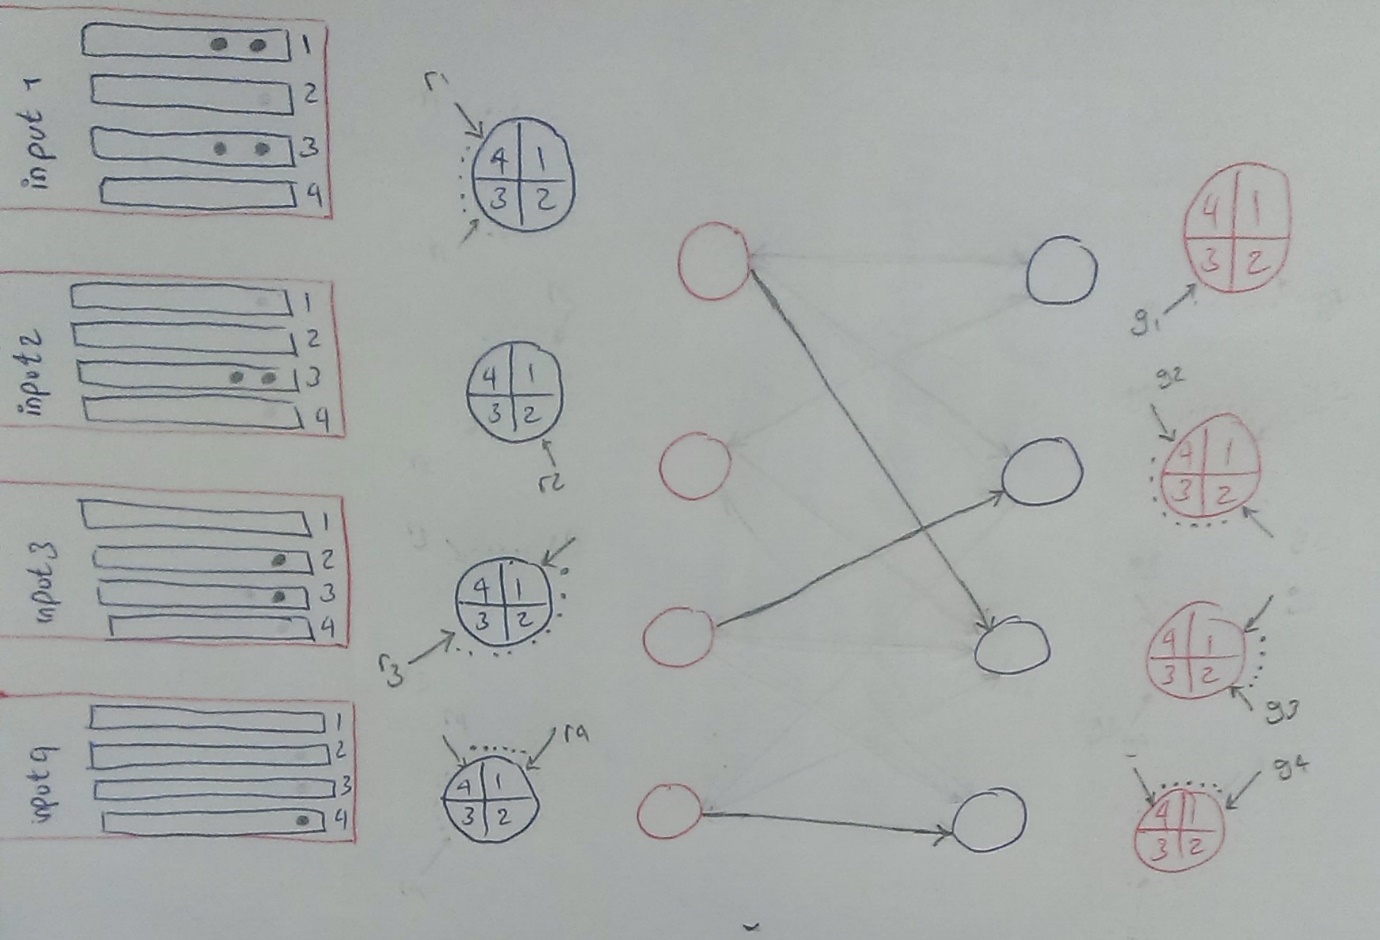 input 1
1
2
3
4
input2
1
2
3
4
input3
1
2
3
4
input4
1
2
3
4
r1
4 1
3 2
4 1
3 2
r2
4 1
3 2
r3
r4
4 1
3 2
4 1
3 2
g1
g2
4 1
3 2
4 1
3 2
g3
g4
4 1
3 2